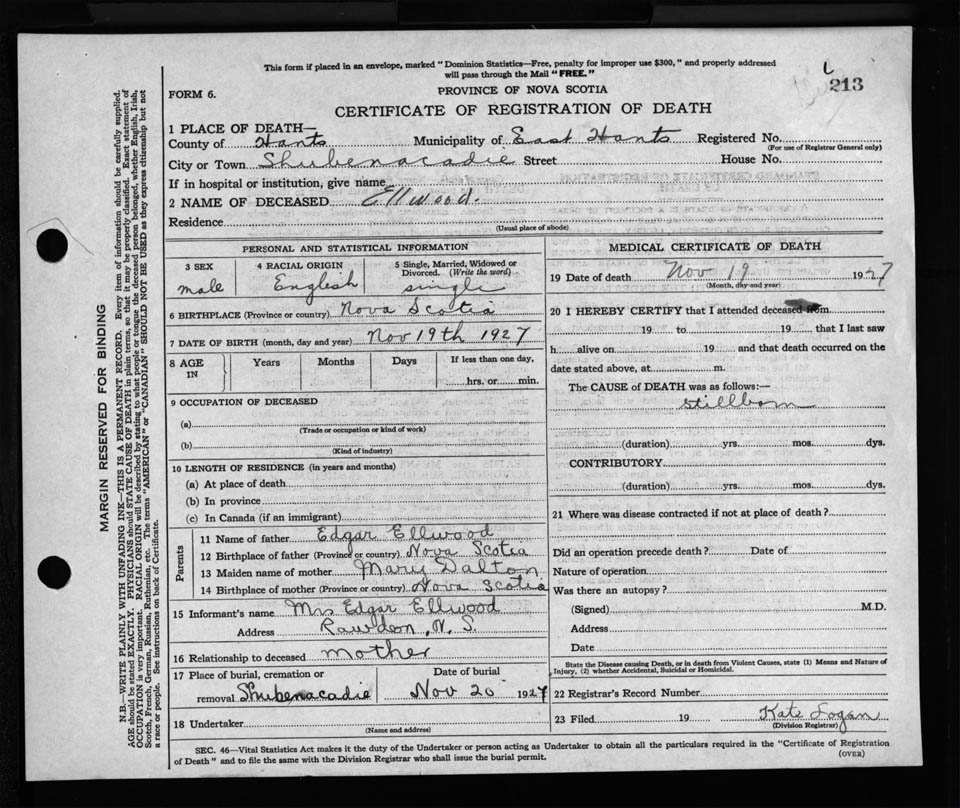 This form if placed in an envelope, marked "Dominion Statistics—Free, penalty for improper use $300," and properly addressed
will pass through the Mail "FREE."
213
FORM 6.
PROVINCE OF NOVA SCOTIA
CERTIFICATE OF REGISTRATION OF DEATH
1 PLACE OF DEATH—
County of Hants Municipality of East Hants Registered No.
(For use of Registrar General only)
City or Town Shubenacadie Street House No.
If in hospital or institution, give name
2 NAME OF DECEASED Ellwood.
Residence
(Usual place of abode)
PERSONAL AND STATISTICAL INFORMATION
3 SEX 4 RACIAL ORIGIN 5 Single, Married, Widowed or
Divorced. (Write the word)
male English single
6 BIRTHPLACE (Province or country) Nova Scotia
7 DATE OF BIRTH (month, day and year) Nov 19th 1927
8 AGE IN Years Months Days If less than one day,
hrs. or min.
9 OCCUPATION OF DECEASED
(a)
(Trade or occupation or kind of work)
(b)
(Kind of industry)
10 LENGTH OF RESIDENCE (in years and months)
(a) At place of death
(b) In province
(c) In Canada (if an immigrant)
Parents
11 Name of father Edgar Ellwood
12 Birthplace of father (Province or country) Nova Scotia
13 Maiden name of mother Mary Dalton
14 Birthplace of mother (Province or country) Nova Scotia
15 Informant's name Mrs Edgar Ellwood
Address Rawdon, N. S.
16 Relationship to deceased mother
17 Place of burial, cremation or Date of burial
removal Shubenacadie Nov 20 1927
18 Undertaker
(Name and address)
MEDICAL CERTIFICATE OF DEATH
19 Date of death Nov 19 1927
(Month, day and year)
20 I HEREBY CERTIFY that I attended deceased from
19 to 19 that I last saw
h alive on 19 and that death occurred on the
date stated above, at m.
The CAUSE of DEATH was as follows:—
Stillborn
(duration) yrs. mos. dys.
CONTRIBUTORY
(duration) yrs. mos. dys.
21 Where was disease contracted if not at place of death?
Did an operation precede death? Date of
Nature of operation
Was there an autopsy?
(Signed) M.D.
Address
Date
State the Disease causing Death, or in death from Violent Causes, state (1) Means and Nature of
Injury, (2) whether Accidental, Suicidal or Homicidal.
22 Registrar's Record Number
23 Filed 19 Kate Logan
(Division Registrar)
SEC. 46—Vital Statistics Act makes it the duty of the Undertaker or person acting as Undertaker to obtain all the particulars required in the "Certificate of Registration
of Death" and to file the same with the Division Registrar who shall issue the burial permit.
(OVER)
MARGIN RESERVED FOR BINDING
N.B.—WRITE PLAINLY WITH UNFADING INK—THIS IS A PERMANENT RECORD. Every item of information should be carefully supplied.
AGE should be stated EXACTLY. PHYSICIANS should STATE CAUSE OF DEATH in plain terms, so that it may be properly classified. Exact statement of
OCCUPATION is very important. RACIAL ORIGIN will be described by stating to what people or tongue the deceased person belonged, whether English, Irish,
Scotch, French, German, Russian, Ruthenian, etc. The terms "AMERICAN" or "CANADIAN" SHOULD NOT BE USED as they express citizenship but not
a race or people. See instructions on back of Certificate.